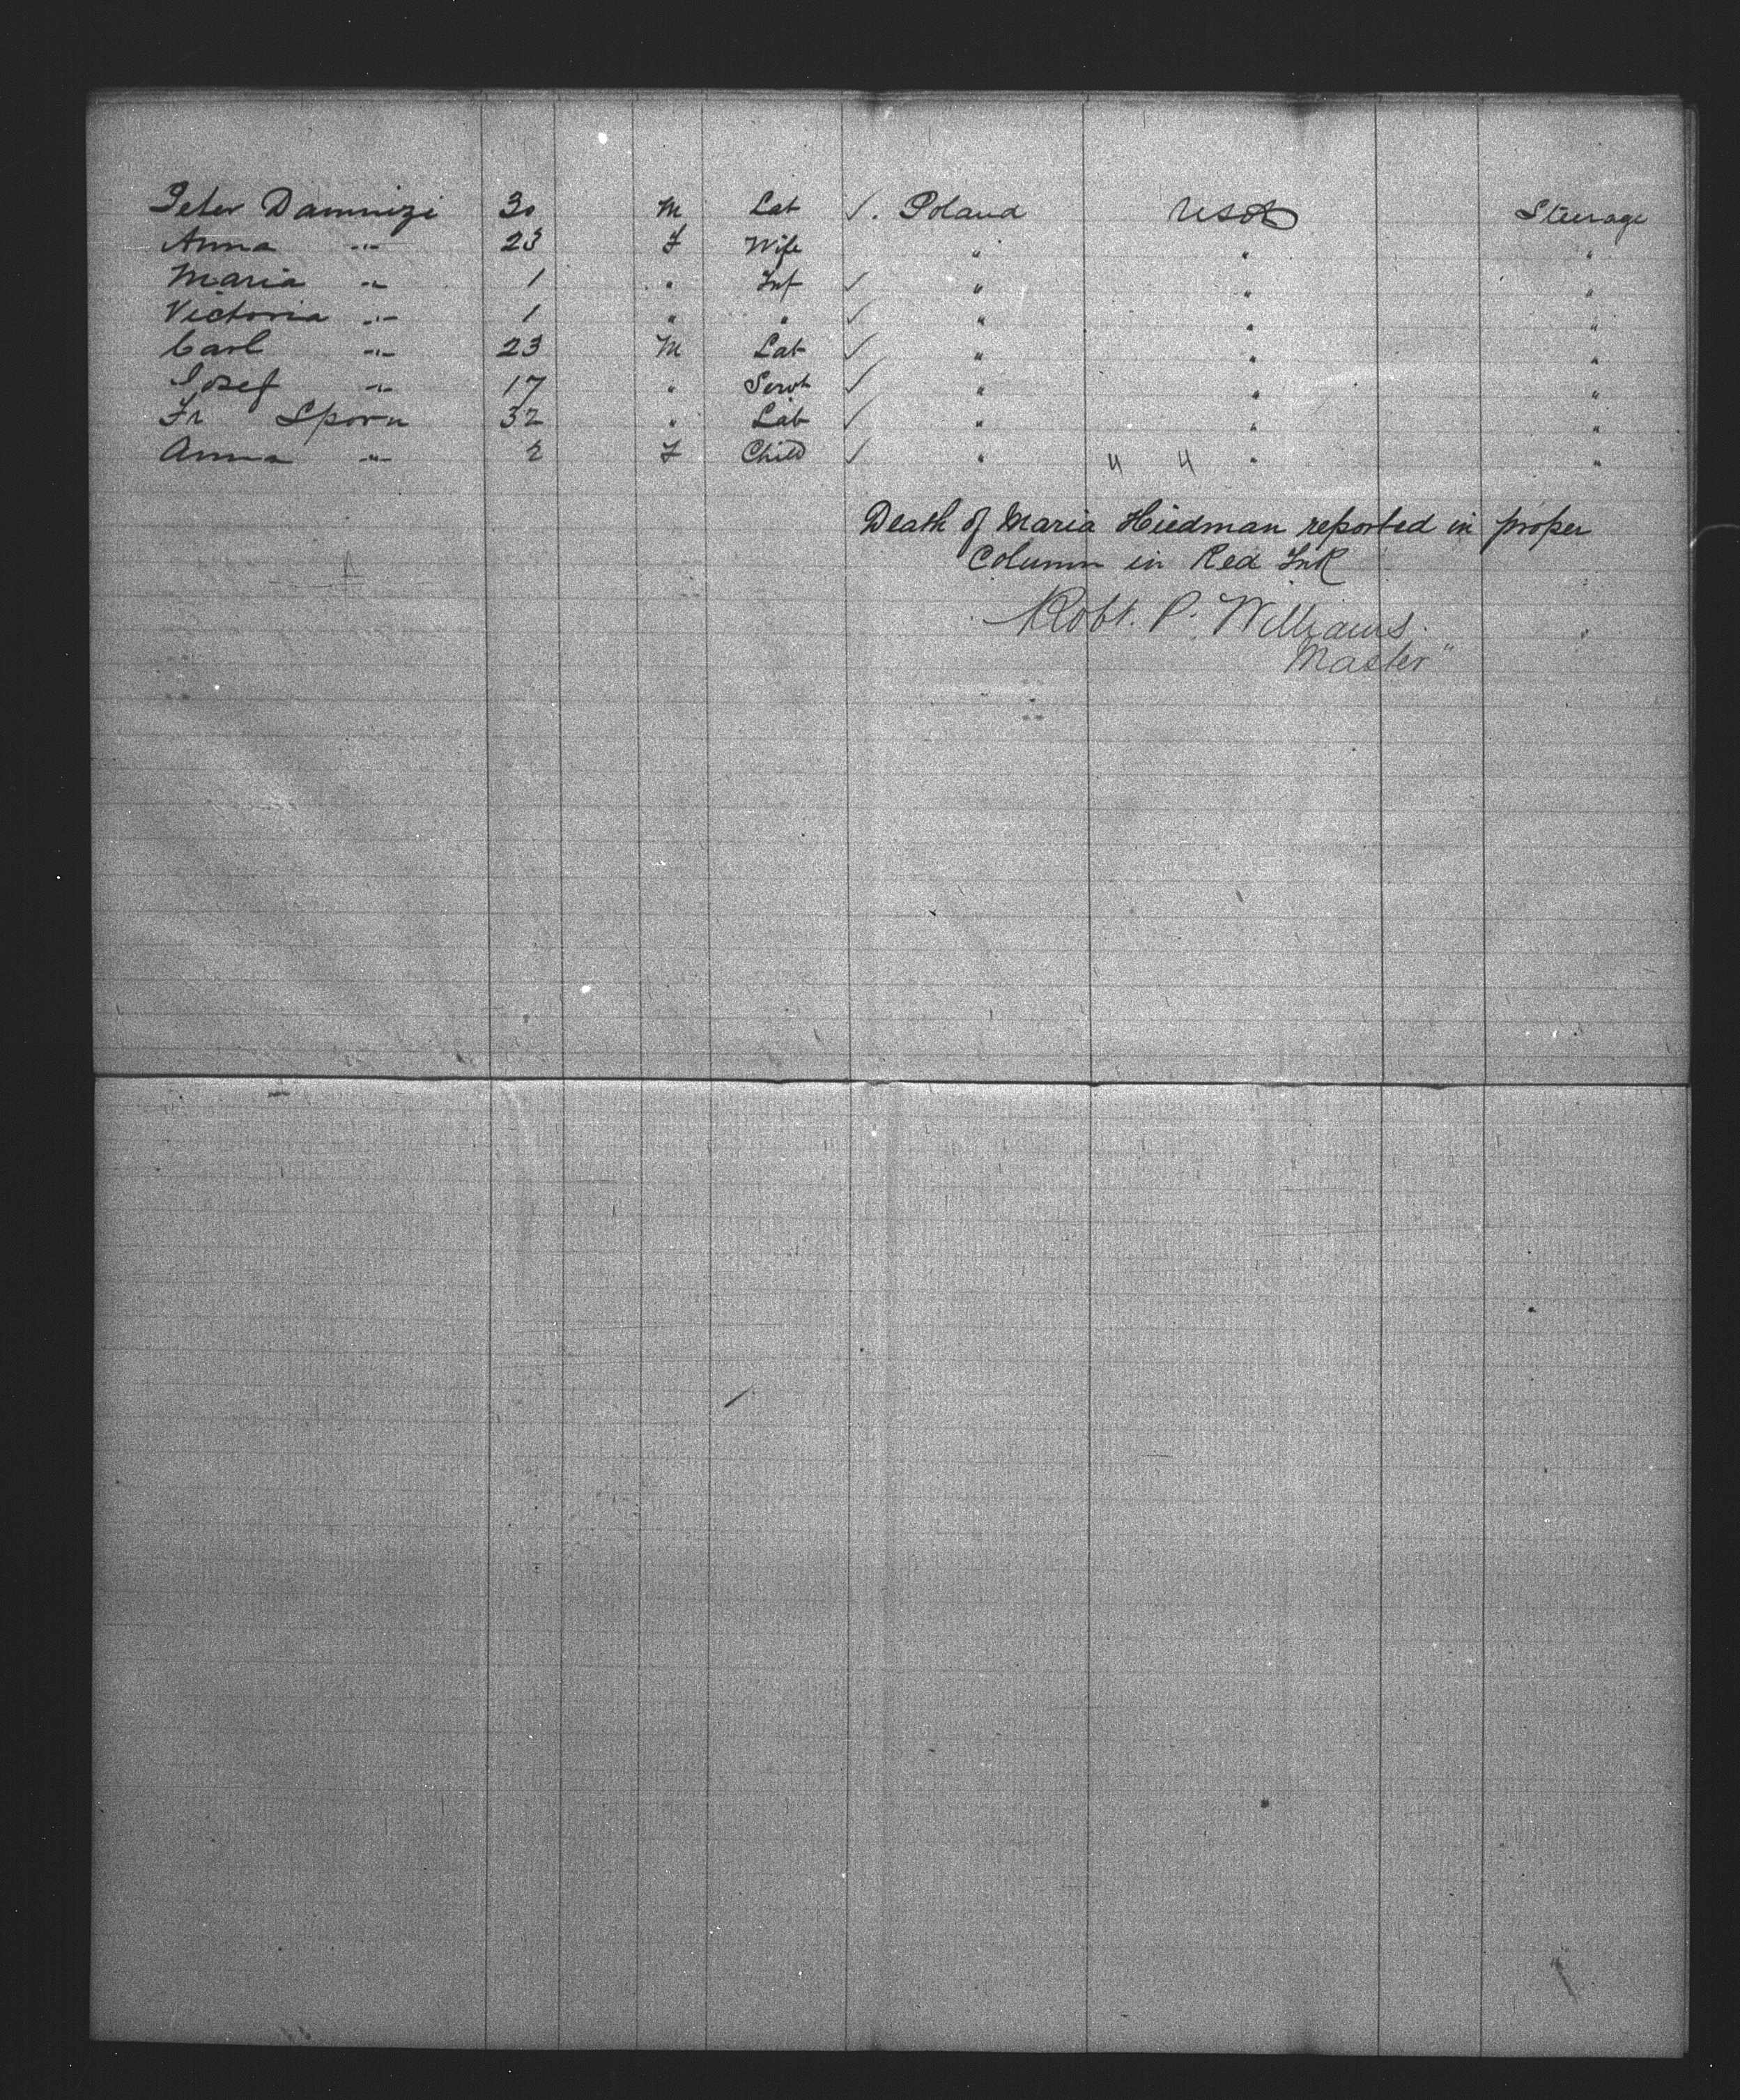 Peter Damnizi 30 M Lab ✓. Poland USA Steerage
Anna -"- 23 F Wife " " "
Maria -"- 1 " Inf ✓ " " "
Victoria -"- 1 " " ✓ " " "
Carl -"- 23 M Lab ✓ " " "
Josef -"- 17 " Servt ✓ " " "
Fr Sporn 32 " Lab ✓ " " "
Anna -"- 2 F Child ✓ " " "
Death of Maria Hiedman reported in proper
Column in Red Ink
Robt. P. Williams
Master